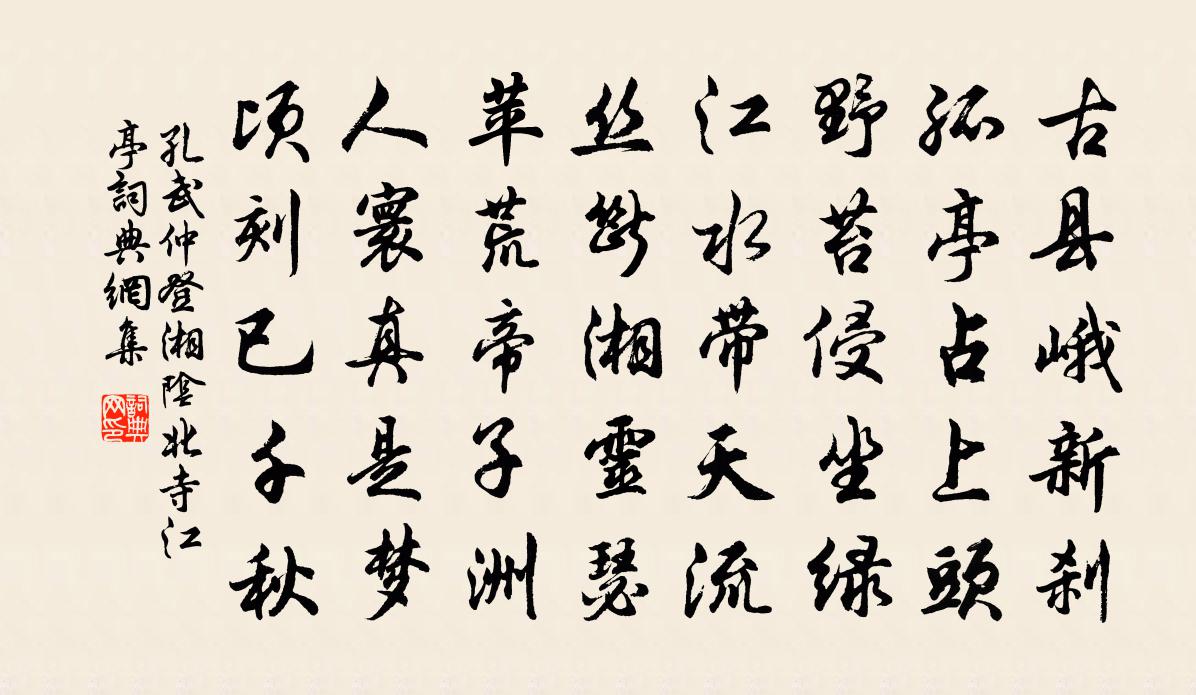 古县峨新刹
孤亭占上头
野苔侵坐绿
江水带天流
丝断湘靈瑟
苹荒帝子洲
人寰真是梦
顷刻已千秋
孔武仲登湘陰北寺江
亭詞典網集
詞典
网印